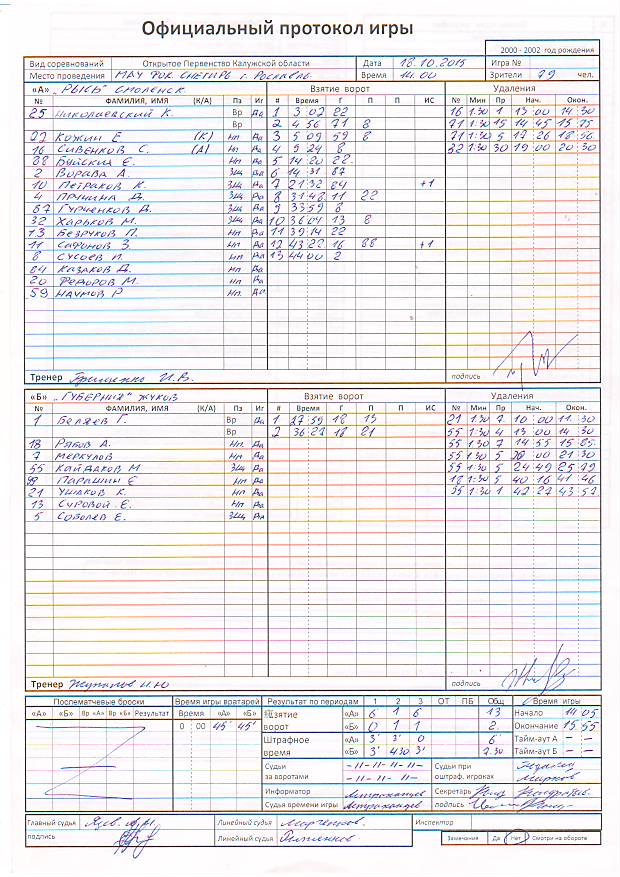 Официальный протокол игры
2000 - 2002 год рождения
Вид соревнований Открытое Первенство Калужской области Дата 18.10.2015 Игра №
Место проведения МАУ ФОК СНЕГИРЬ г. Рославль Время 14.00 Зрители 79 чел.
«А» „РЫСЬ" СМОЛЕНСК Взятие ворот Удаления
№ ФАМИЛИЯ, ИМЯ (К/А) Пз Иг # Время Г П П ИС № Мин Пр Нач. Окон.
25 Николаевский К. Вр Да 1 3 02 22 16 1:30 1 13 00 14 30
Вр 2 4 56 71 8 71 1:30 15 14 45 15 75
77 Кожин Е (К) Нп Да 3 5 09 59 8 71 1:30 5 17 26 18 56
16 Сивенков С. (А) Нп Да 4 9 24 8 22 1:30 30 19 00 20 30
88 Буйский Е. Нп Да 5 14 20 22
2 Ворова А. Зщ Да 6 14 31 87
10 Петраков К. Зщ Да 7 21 32 84 +1
4 Пружина Д. Зщ Да 8 31 48 11 22
87 Гурченков Д. Зщ Да 9 33 59 8
32 Харьков М. Зщ Да 10 36 04 13 8
13 Безруков П. Нп Да 11 39 14 22
11 Сафонов З. Нп Да 12 43 22 16 88 +1
8 Сусоев И. Нп Да 13 44 00 2
84 Казаков Д. Нп Да
20 Федоров М. Нп Да
59 Наумов Р Нп. Да
Тренер И.В. подпись
«Б» „ГУБЕРНИЯ" ЖУКОВ Взятие ворот Удаления
№ ФАМИЛИЯ, ИМЯ (К/А) Пз Иг # Время Г П П ИС № Мин Пр Нач. Окон.
1 Беляев Г. Вр Да 1 27 59 18 13 21 1:30 7 10 00 11 30
Вр 2 36 27 18 21 55 1:30 4 13 00 14 30
18 Рябов А. Нп. Да 55 1:30 7 14 55 15 25
7 Меркулов Нп Да 55 1:30 5 20 00 21 30
55 Кайдаков М Зщ Да 55 1:30 5 24 49 25 79
99 Парашин Е Нп Да 18 1:30 5 40 16 41 46
21 Ушаков К. Нп Да 35 1:30 1 42 27 43 57
13 Суровой Е. Нп Да
5 Соболев Е. Зщ Да
Тренер И.Ю подпись
Послематчевые броски Время игры вратарей Результат по периодам 1 2 3 ОТ ПБ Общ Время игры
«А» «Б» Вр «А» Вр «Б» Результат Время «А» «Б» Взятие «А» 6 1 6 13 Начало 14 05
0 00 45' 45' ворот «Б» 0 1 1 2 Окончание 15 55
Штрафное «А» 3' 3' 0 6' Тайм-аут А – –
время «Б» 3' 4.30 3' 7.30 Тайм-аут Б – –
Судьи -"- -"- -"- -"- Судьи при
за воротами -"- -"- -"- -"- оштраф. игроках
Информатор Секретарь
Судья времени игры подпись
Главный судья Линейный судья Инспектор
подпись Линейный судья Замечания Да Нет Смотри на обороте